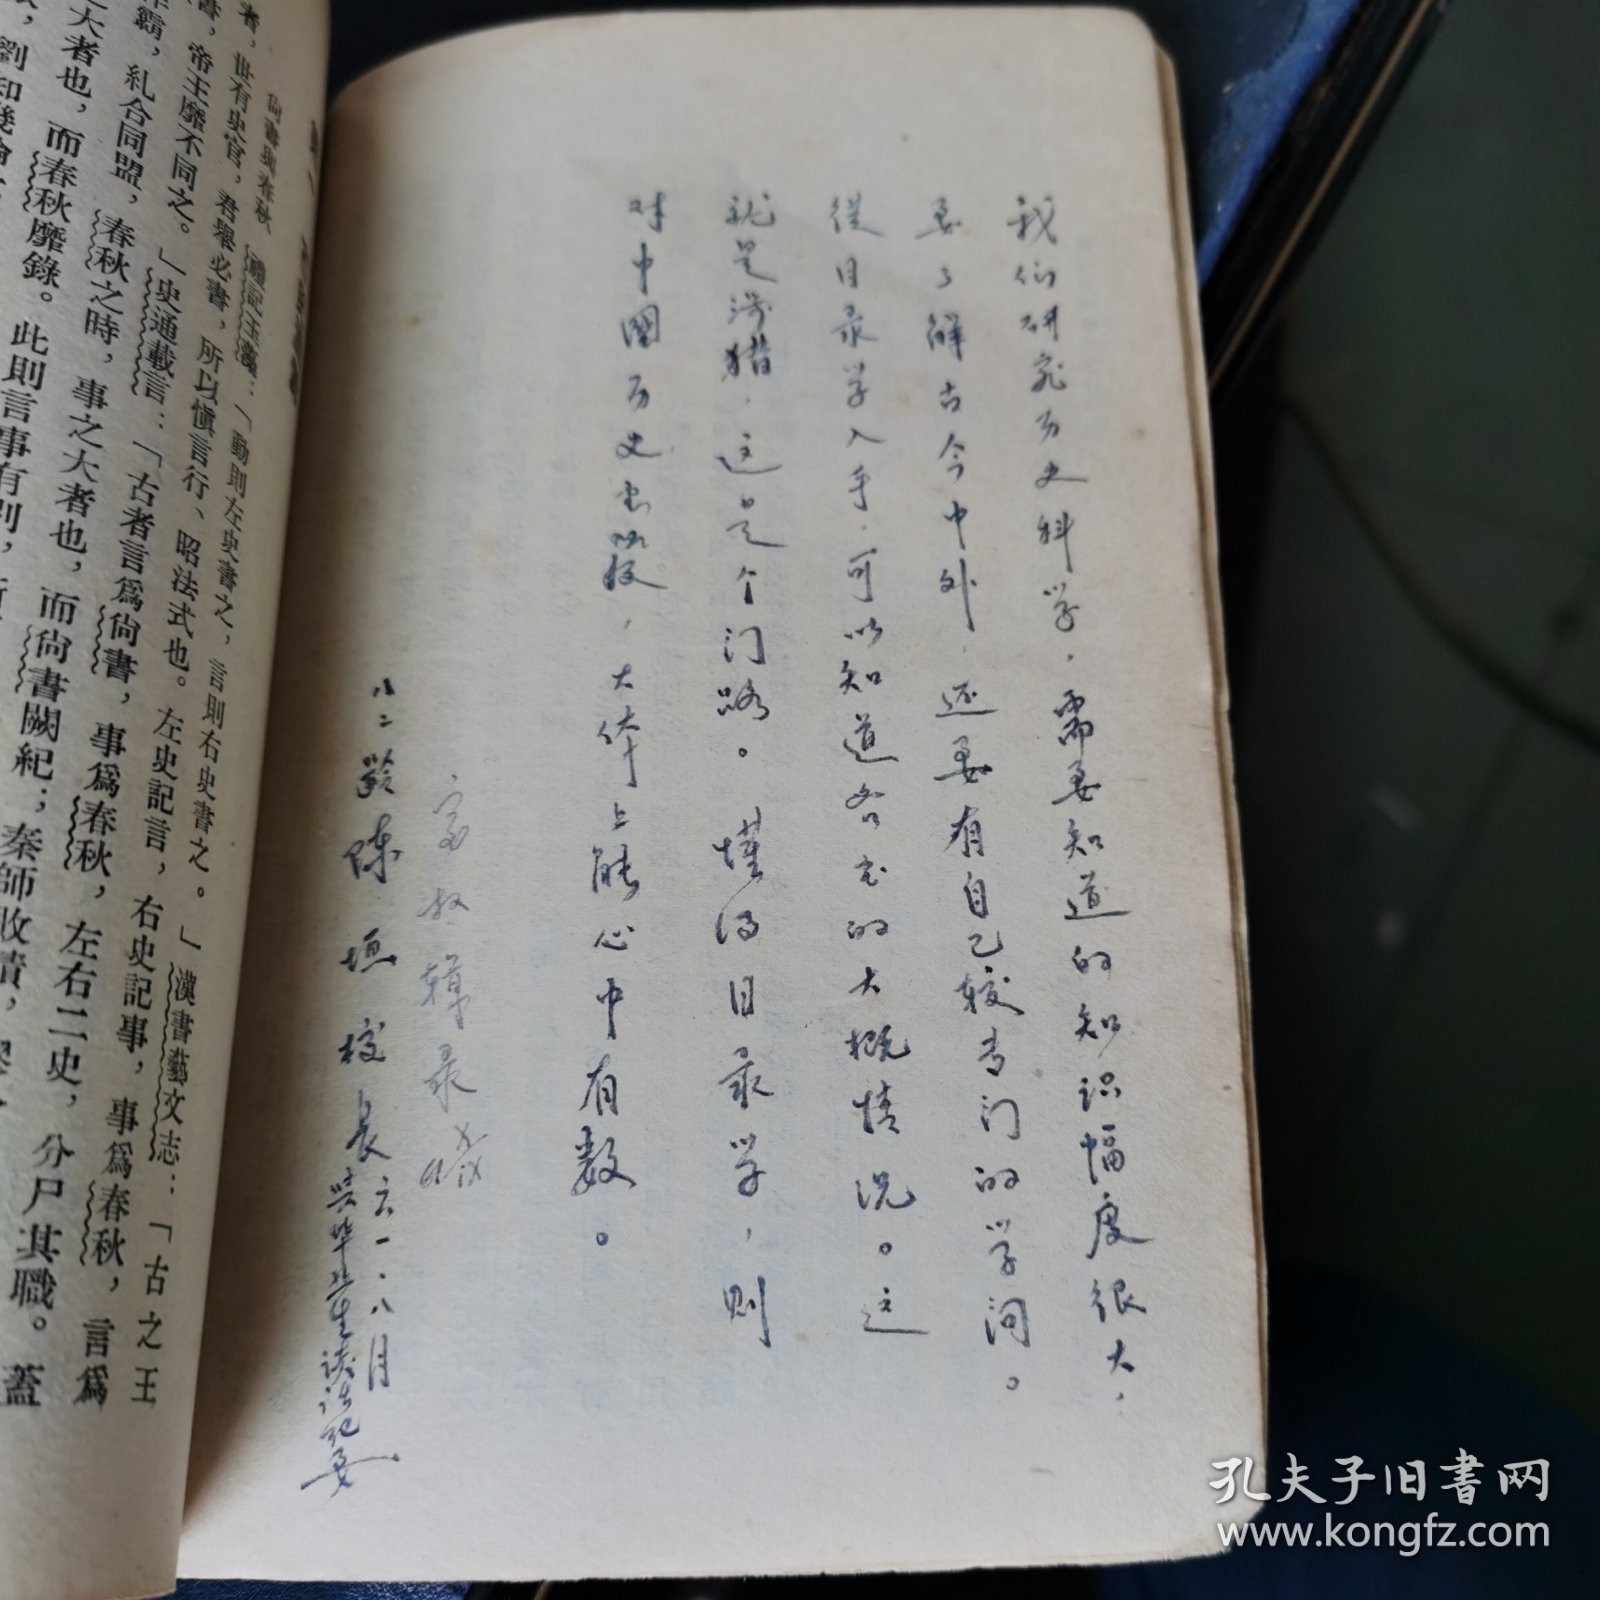 我们研究历史科学，需要知道的知识幅度很大，
要了解古今中外，还要有自己较专门的学问。
从目录学入手，可以知道各书的大概情况。这
就是涉猎，这是个门路。懂得目录学，则
对中国历史书籍，大体上能心中有数。
家教辑录
八二龄陈垣校长六一·八月
与毕业生谈话纪要
尙書與春秋
禮記玉藻：「動則左史書之，言則右史書之。」漢書藝文志：「古之王
者，世有史官，君舉必書，所以愼言行、昭法式也。左史記言，右史記事，事爲春秋，言爲
書，帝王靡不同之。」史通載言：「古者言爲尙書，事爲春秋，左右二史，分尸其職。蓋
霸，糺合同盟，春秋之時，事之大者也，而尙書闕紀；秦師敗績，
之大者也，而春秋靡錄。此則言事有別，
劉知幾
孔夫子旧書网
www.kongfz.com